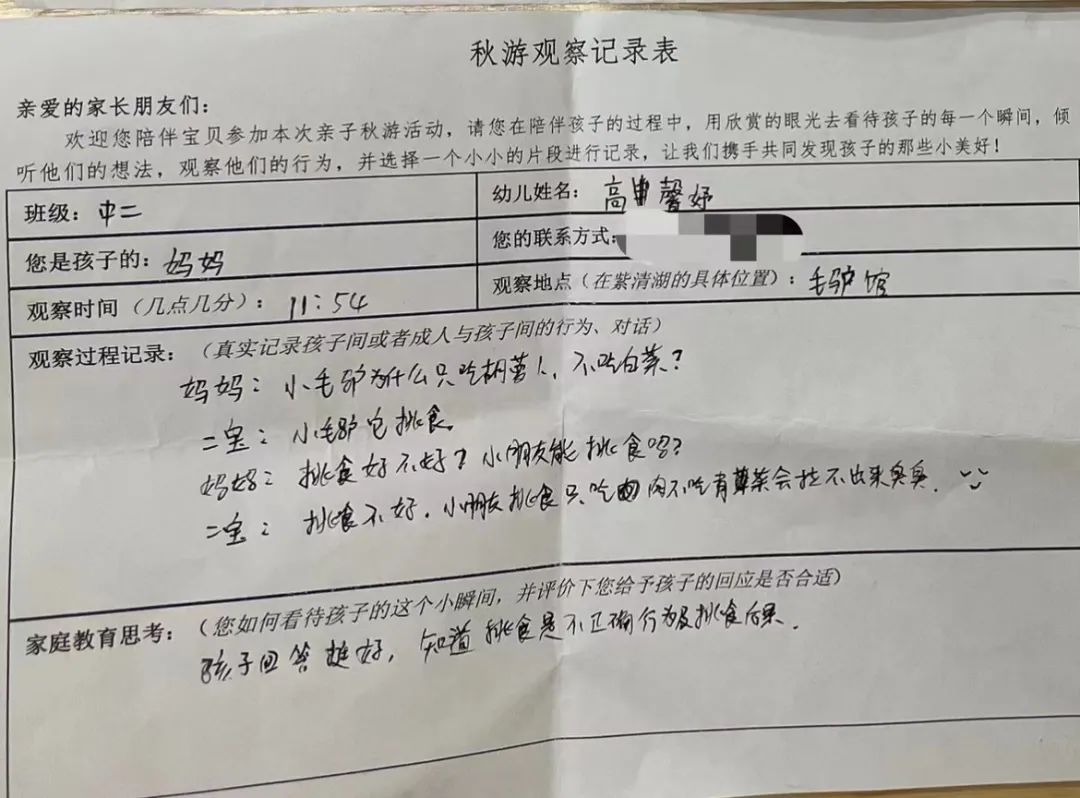 秋游观察记录表
亲爱的家长朋友们：
欢迎您陪伴宝贝参加本次亲子秋游活动，请您在陪伴孩子的过程中，用欣赏的眼光去看待孩子的每一个瞬间，倾
听他们的想法，观察他们的行为，并选择一个小小的片段进行记录，让我们携手共同发现孩子的那些小美好！
班级：中二
幼儿姓名：高申馨妤
您是孩子的：妈妈
您的联系方式：
观察时间（几点几分）：11：54
观察地点（在紫清湖的具体位置）：毛驴馆
观察过程记录：（真实记录孩子间或者成人与孩子间的行为、对话）
妈妈：小毛驴为什么只吃胡萝卜，不吃白菜？
二宝：小毛驴它挑食。
妈妈：挑食好不好？小朋友能挑食吗？
二宝：挑食不好，小朋友挑食只吃肉不吃青菜会拉不出来臭臭.
家庭教育思考：（您如何看待孩子的这个小瞬间，并评价下您给予孩子的回应是否合适）
孩子回答挺好，知道挑食是不正确行为及挑食后果.